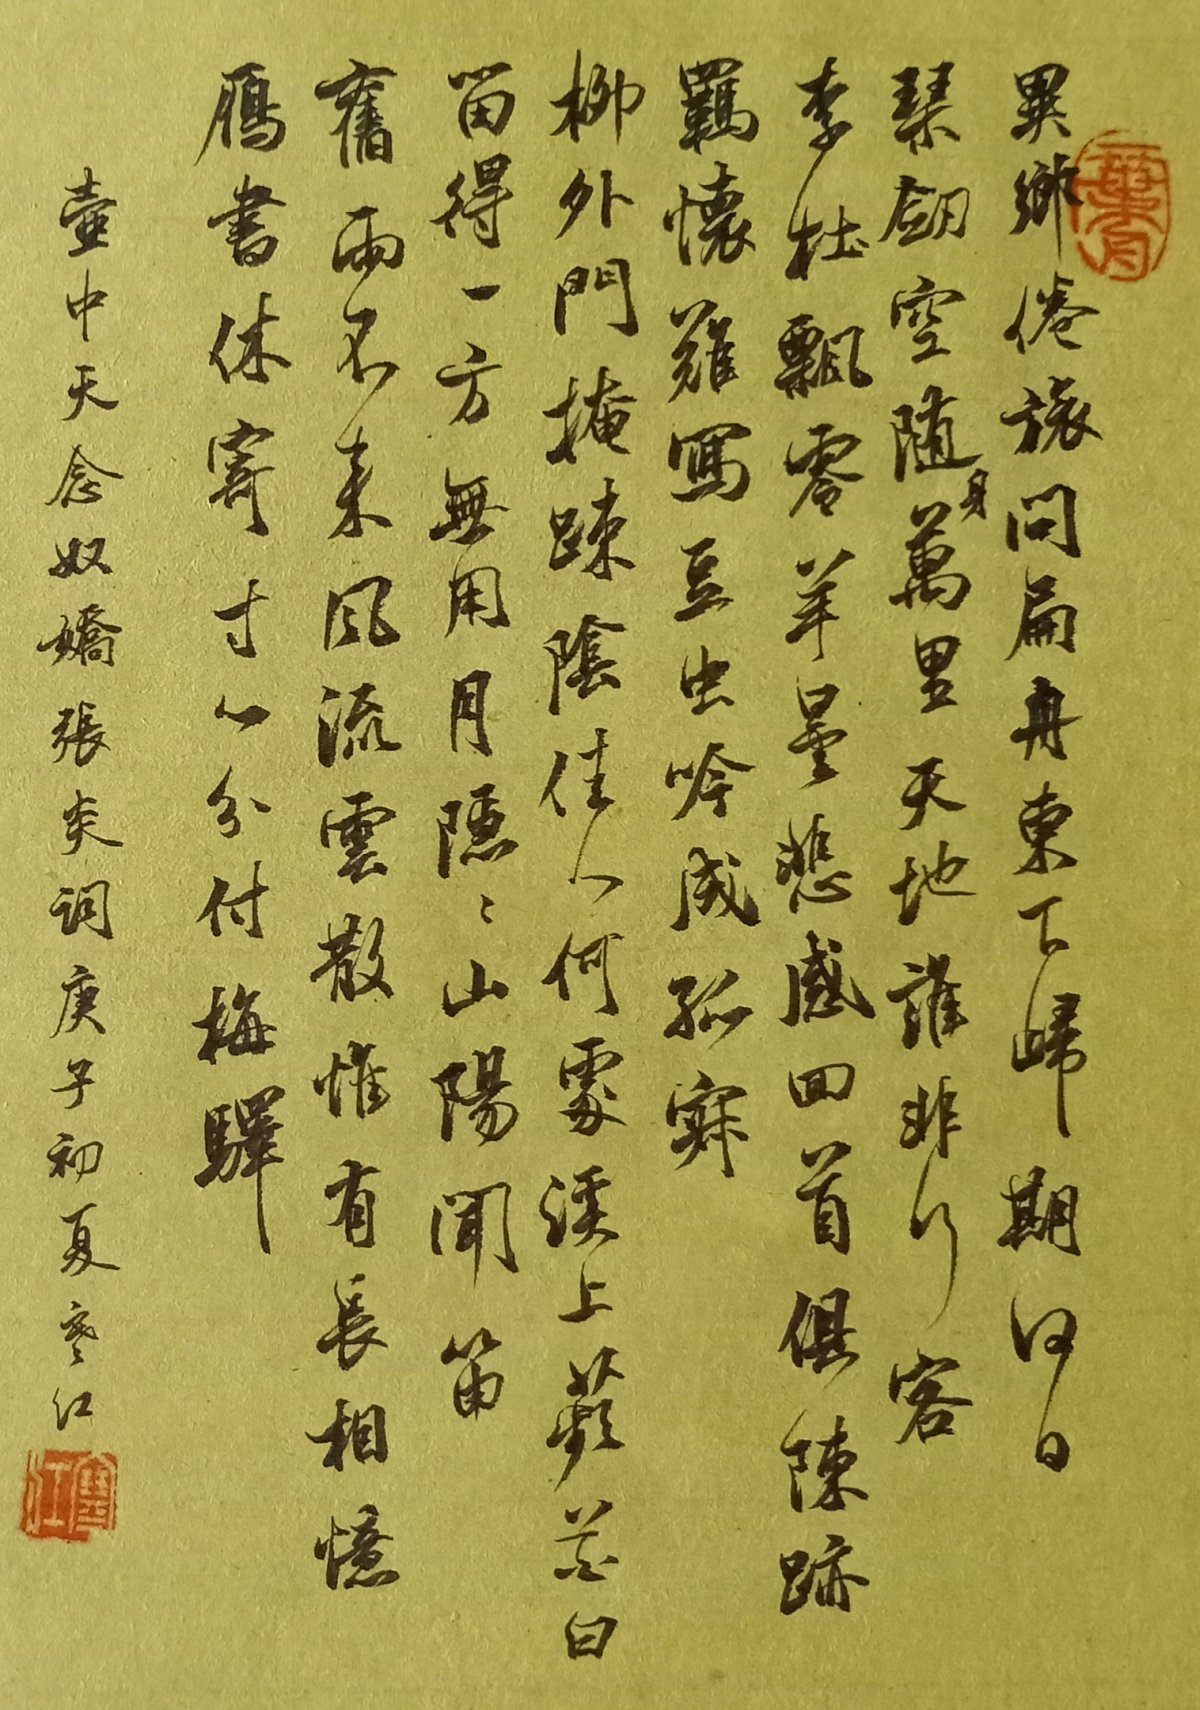 異鄉倦旅問扁舟東下歸期何日
琴劍空隨身萬里天地誰非行客
李杜飄零羊曇悲感回首俱陳跡
羈懷難寫豆蟲吟成孤寂
柳外門掩疎陰佳人何處溪上蘋花白
留得一方無用月隱〻山陽聞笛
舊雨不來風流雲散惟有長相憶
鴈書休寄寸心分付梅驛
壺中天念奴嬌張炎詞庚子初夏寒江
寒江